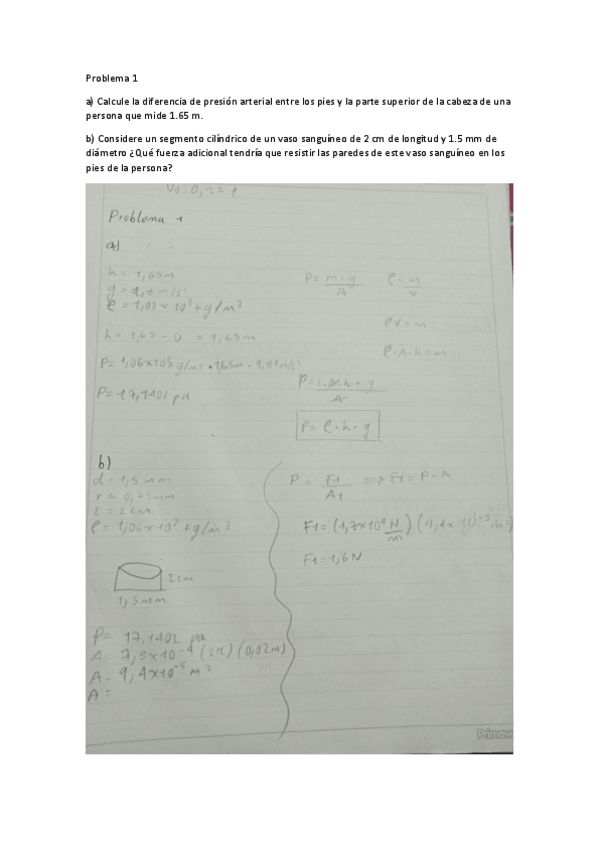 Problema 1
a) Calcule la diferencia de presión arterial entre los pies y la parte superior de la cabeza de una
persona que mide 1.65 m.
b) Considere un segmento cilíndrico de un vaso sanguíneo de 2 cm de longitud y 1.5 mm de
diámetro ¿Qué fuerza adicional tendría que resistir las paredes de este vaso sanguíneo en los
pies de la persona?
Problema 1
a)
h = 1,65m
g = 9,8 m/s²
h = 1,65 - 0 = 1,65m
P = 17,1402 pa
P = m·g / A
ρ = m / v
ρv = m
ρ·A·h = m
P = ρ·A·h·g / A
P = ρ·h·g
b)
d = 1,5 mm
r = 0,75mm
L = 2cm
ρ = 1,06x10³ kg/m³
2cm
1,5mm
P = 17,1402 pa
A = 7,5x10⁻⁴ (2π) (0,02m)
A = 9,4x10⁻⁵ m²
A =
P = F1 / A1 => F1 = P·A
F1 = (1,7x10⁴ N/m²)
F1 = 1,6N